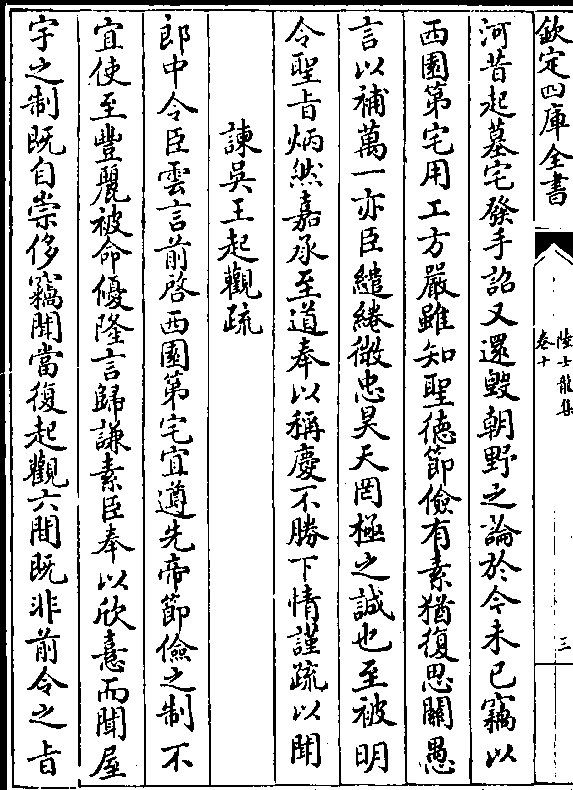 欽定四庫全書
陸士龍集
卷十
三
河昔起墓宅發手詔又還毀朝野之論於今未已竊以
西園第宅用工方嚴雖知聖德節儉有素猶復思關愚
言以補萬一亦臣繾綣微忠昊天罔極之誠也至被明
令聖旨炳然嘉承至道奉以稱慶不勝下情謹疏以聞
諫吳王起觀疏
郎中令臣雲言前啓西園第宅宜遵先帝節儉之制不
宜使至豐麗被命優隆言歸謙素臣奉以欣憙而聞屋
宇之制既自崇侈竊聞當復起觀六間既非前令之旨